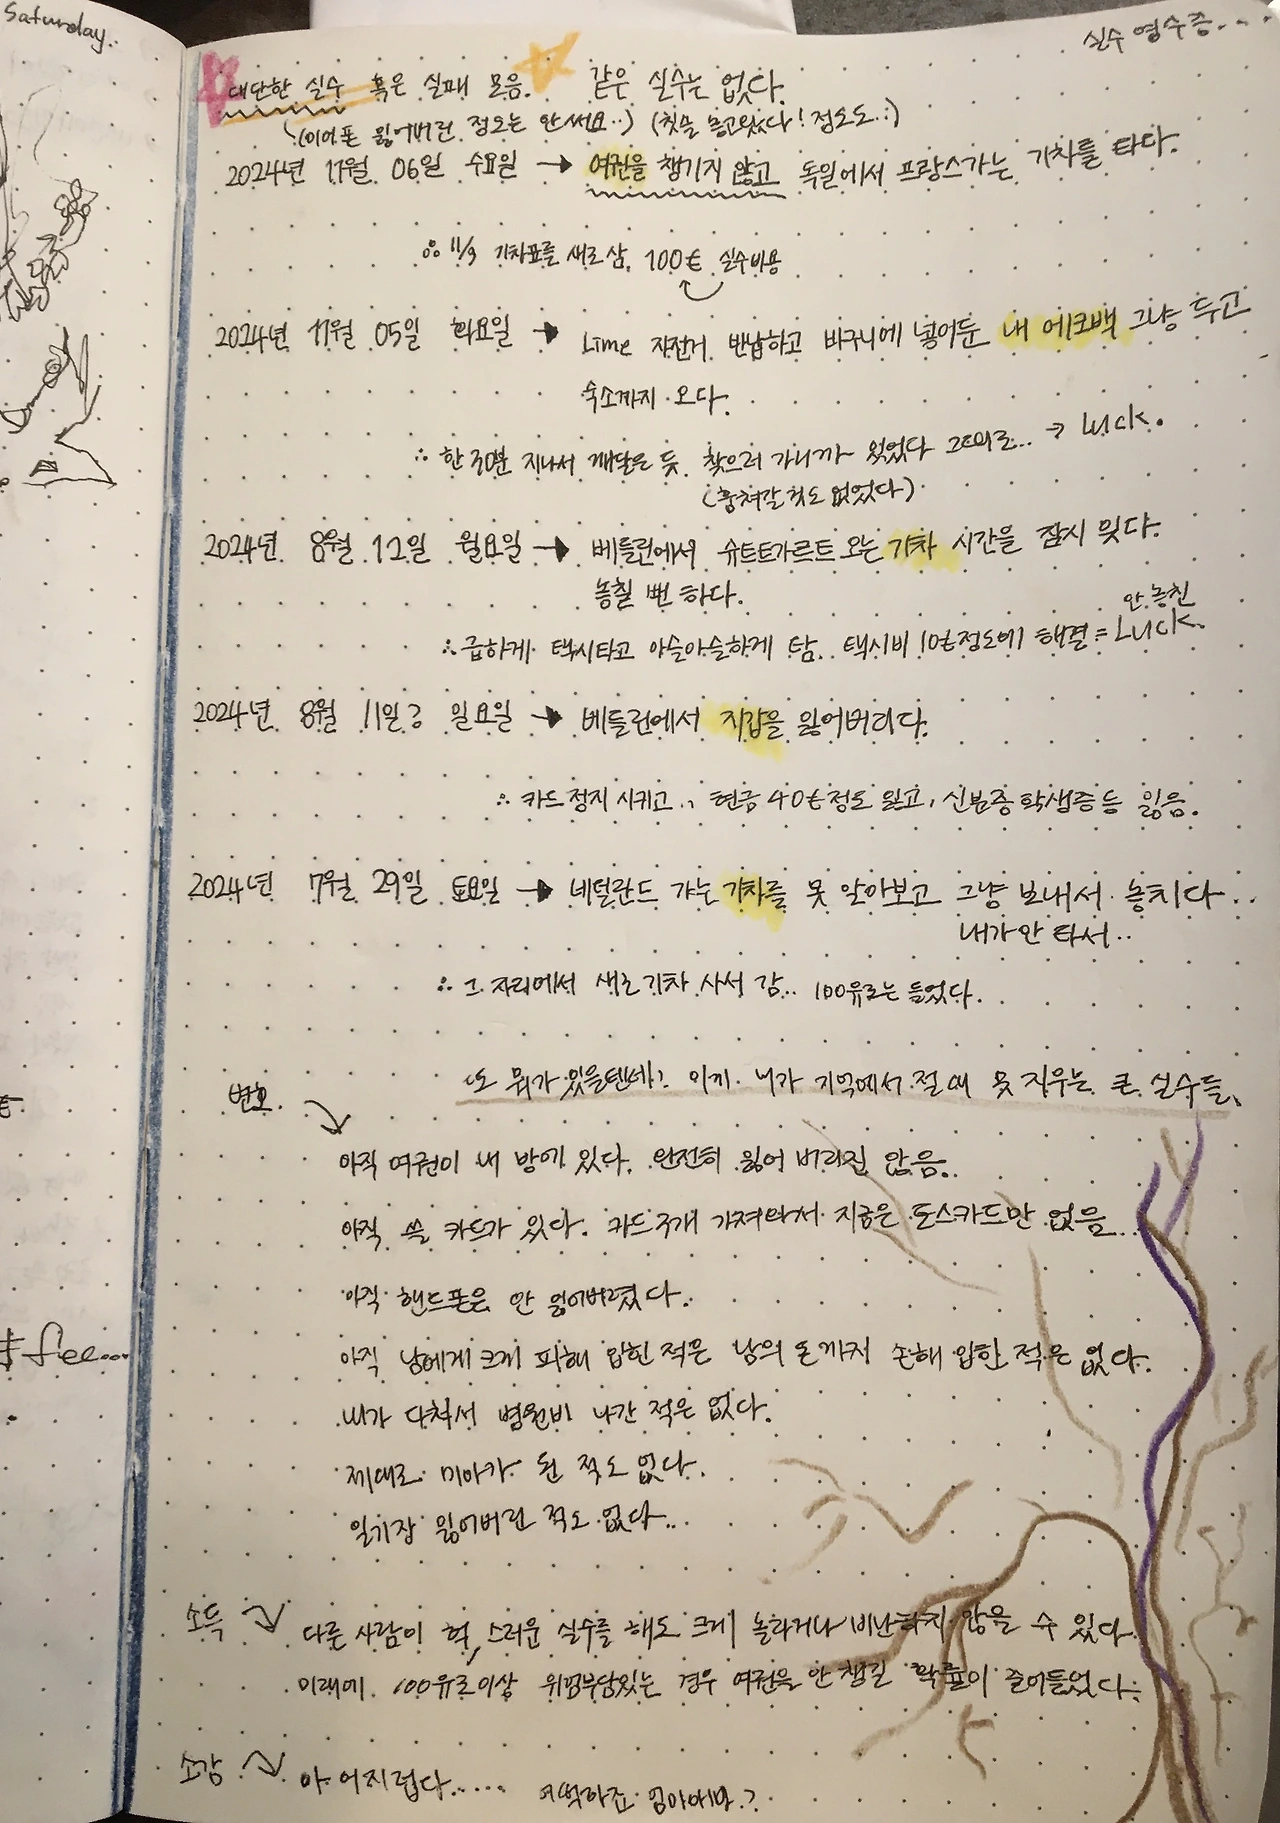 Saturday..
실수 영수증...
대단한 실수 혹은 실패 모음. 같은 실수는 없다.
(이어폰 잃어버린 정도는 안 써요..) (칫솔 놓고왔다! 정도도..)
2024년 11월 06일 수요일 → 여권을 챙기지 않고 독일에서 프랑스가는 기차를 타다.
11/9 기차표를 새로 삼. 100€ 실수비용
2024년 11월 05일 화요일 → Lime 자전거 반납하고 바구니에 넣어둔 내 에코백 그냥 두고
숙소까지 오다.
∴ 한 30분 지나서 깨달은 듯. 찾으러 가니까 있었다 그대로... → Luck.
(훔쳐갈 것도 없었다)
2024년 8월 12일 월요일 → 베를린에서 슈투트가르트 오는 기차 시간을 잠시 잊다.
놓칠 뻔 하다.
안 놓친
∴ 급하게 택시타고 아슬아슬하게 탐. 택시비 10€정도에 해결 = Luck.
2024년 8월 11일? 일요일 → 베를린에서 지갑을 잃어버리다.
∴ 카드 정지 시키고.. 현금 40€정도 잃고, 신분증 학생증 등 잃음.
2024년 7월 29일 토요일 → 네덜란드 가는 기차를 못 알아보고 그냥 보내서 놓치다..
내가 안 타서..
∴ 그 자리에서 새로 기차 사서 감.. 100유로는 들었다.
또 뭐가 있을텐데? 아끼 내가 기억에서 절대 못 지우는 큰 실수들.
변호
아직 여권이 내 방에 있다. 완전히 잃어 버리진 않음..
아직 쓸 카드가 있다. 카드 3개 가져와서 지금은 토스카드만 없음..
아직 핸드폰은 안 잃어버렸다.
아직 남에게 크게 피해 입힌 적은 남의 돈까지 손해 입힌 적은 없다.
내가 다쳐서 병원비 나간 적은 없다.
제대로 미아가 된 적도 없다.
일기장 잃어버린 적도 없다..
$ fee...
소득
다른 사람이 헉,스러운 실수를 해도 크게 놀라거나 비난하지 않을 수 있다.
미래에 100유로이상 위험부담있는 경우 여권을 안 챙길 확률이 줄어들었다.
소감
아 어지럽다..... 어떡하죠 엄마아빠?